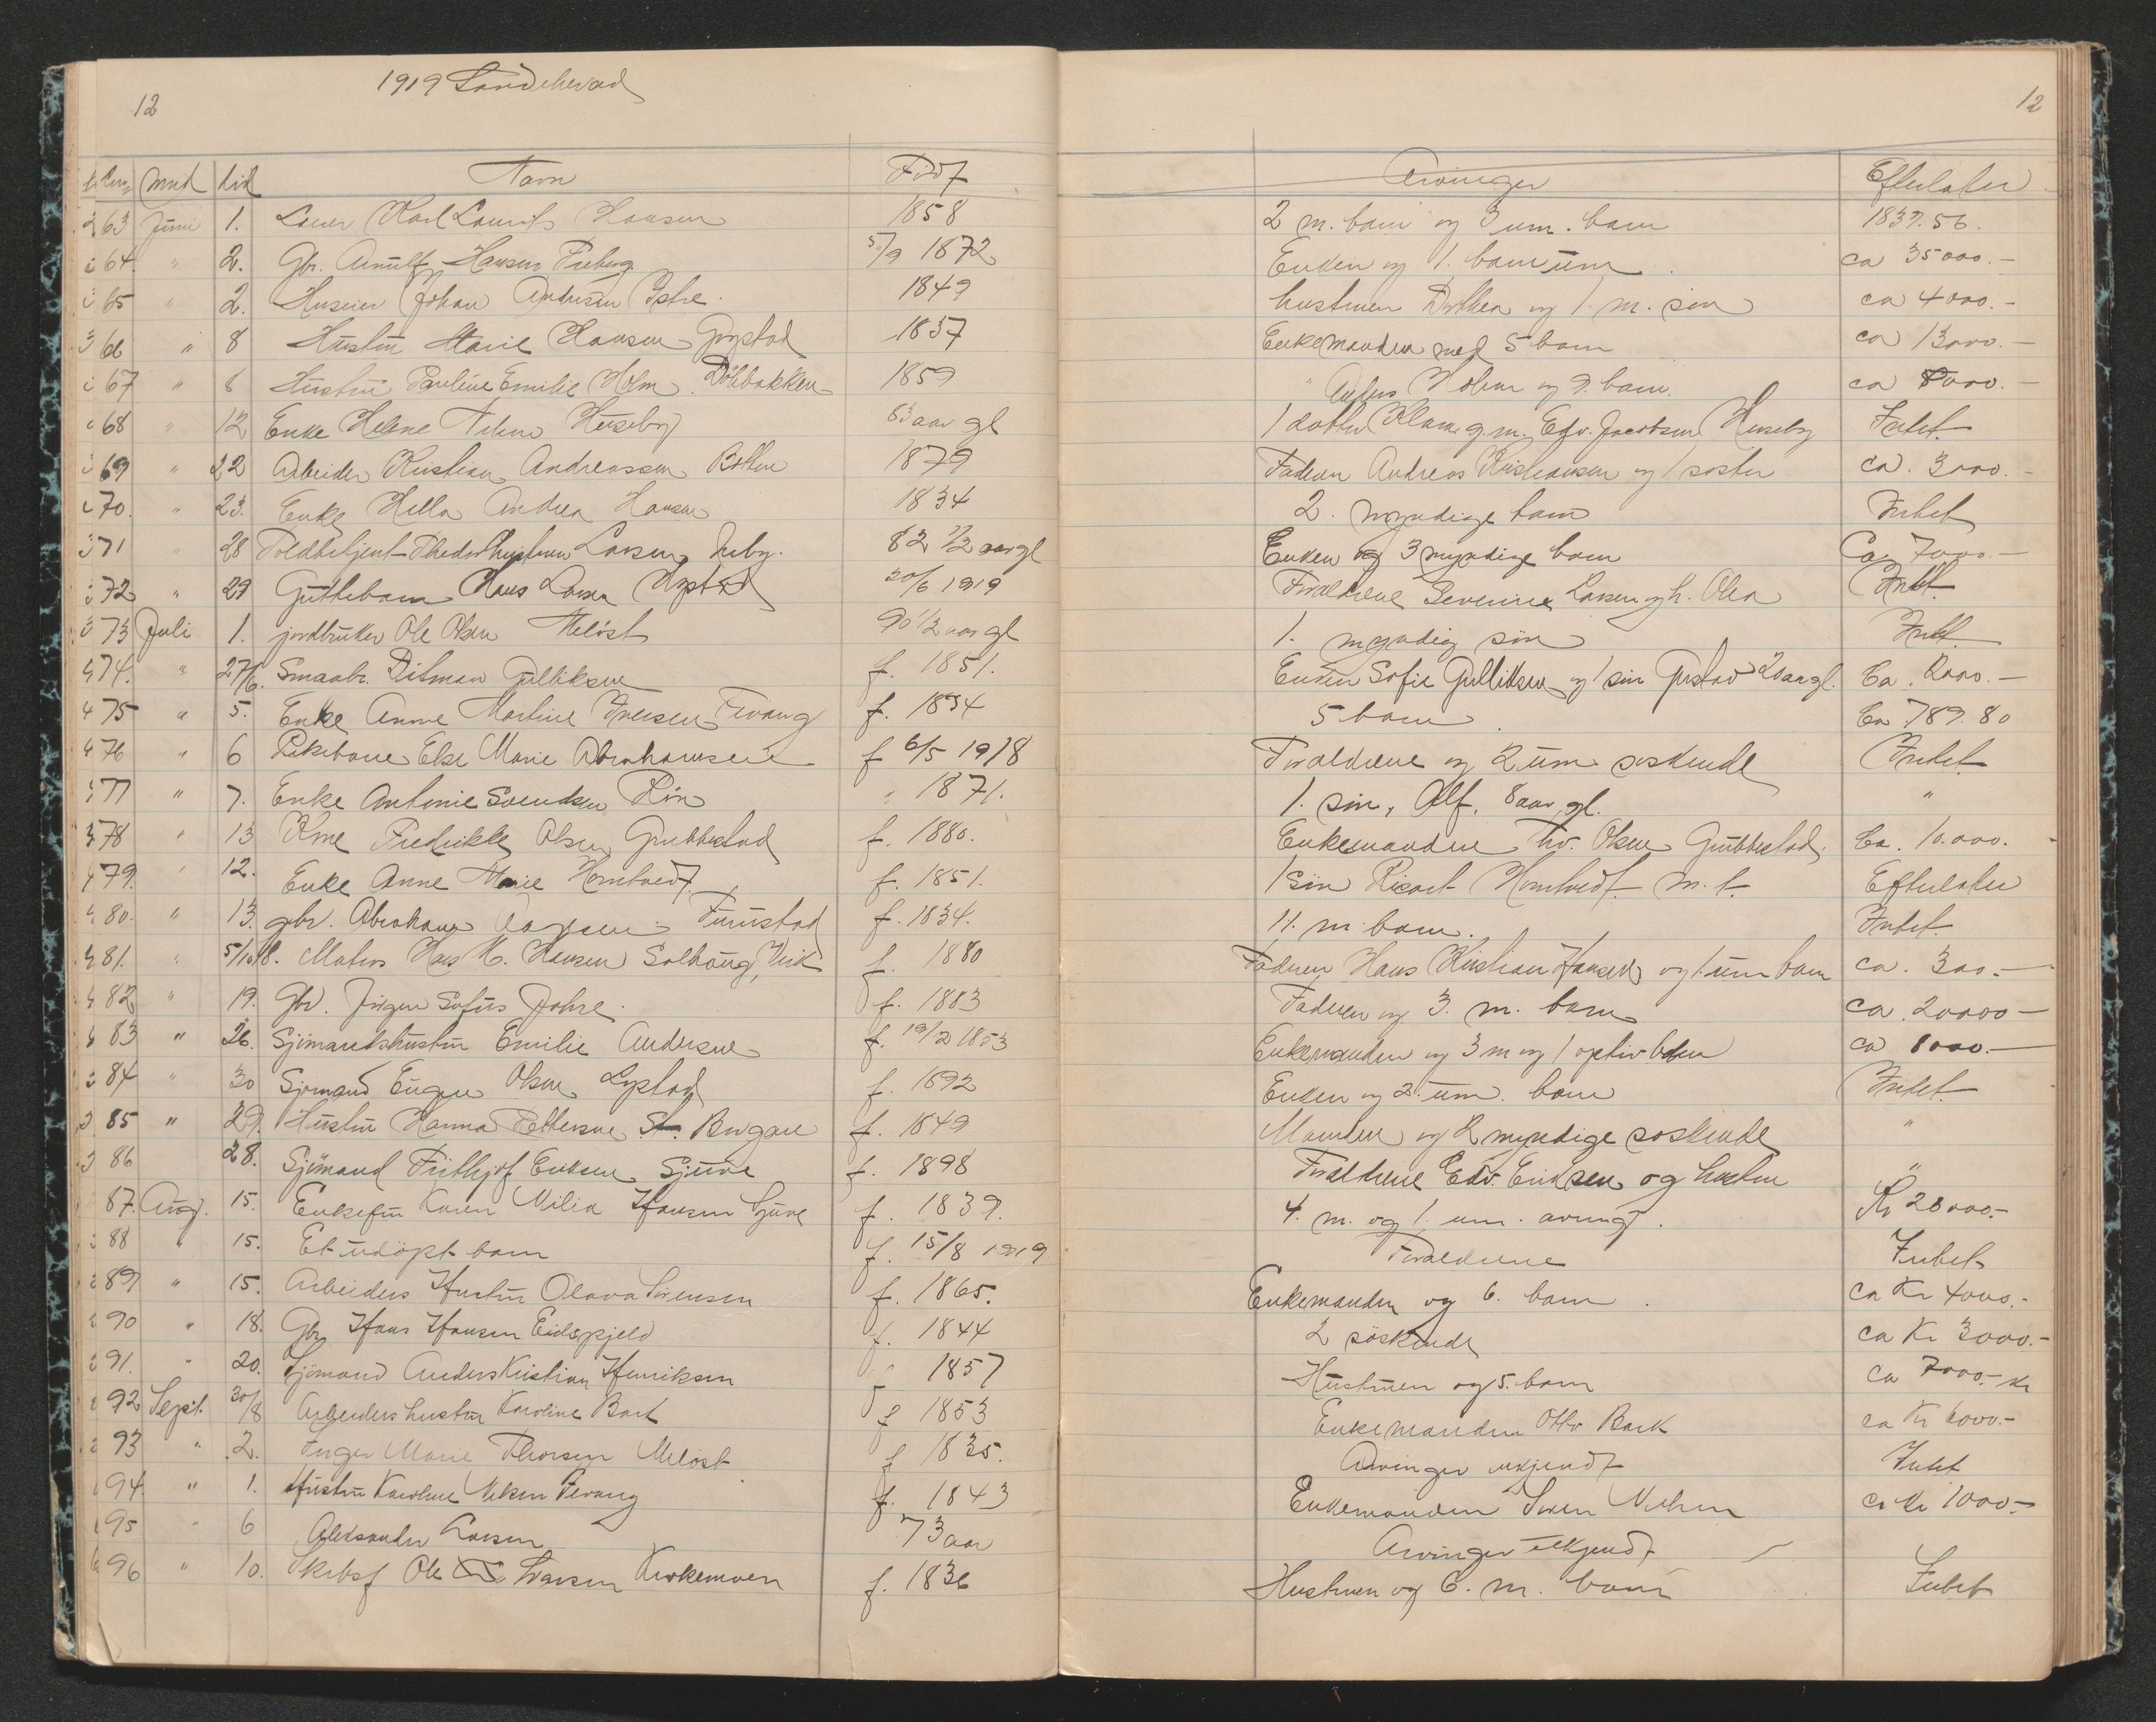 12
1919 Sandeherred
12
Lnr Mnd dtd Navn Født Arvinger Efterlater
63 Juni 1. Karl Laurits Hansen 1858 2 m. barn og 3 um. barn 1837.56.
64. " 2. Gbr. Arnulf Hansen Freberg 5/9 1872 Enken og 1. barn um ca 35000.-
65 " 2. Huseier Johan Andersen Istre. 1849 hustruen Dorthea og 1. m. søn ca 4000.-
66 " 8 Hustru Marie Hansen 1837 Enkemanden med 5 barn ca 13000.-
67 " 8 Hustru Pauline Emilie Holm. Döhbakken 1859 " Anders Holm og 9. barn. ca 8000.-
68 " 12 Enke Helene Huseby 83 aar gl 1 datter g.m. Edv. Jacobsen Huseby Intet.
69 " 22 Arbeider Kristian Andreassen 1879 Faderen Andreas Kristiansen og 1 søster ca. 3000.-
70. " 23. Enke Hella Andrea Hansen 1834 2. myndige barn Intet
71 " 28 Toldbetjent Larsen 82 1/2 aar gl Enken og 3 myndige barn Ca 7000.-
72 " 29 Guttebarn Hans Larsen 20/6 1919 Forældrene Severin Larsen og h. Olea Intet.
73 Juli 1. jordbruker Ole Olsen Meløst 90 1/2 aar gl 1. myndig søn Intet
74. " 27/6. Smaabr. Ditman Gulliksen f. 1851. Enken Sofie Gulliksen og 1 søn Gustav 20 aar gl. Ca. 2000.-
75 " 5. Enke Anne Martine Iversen Tevang f. 1834 5 barn Ca 789.80
76 " 6 Pikebarn Else Marie Abrahamsen f 6/5 1918 Forældrene og 2 um søskende Intet
77 " 7. Enke Antonie Svendsen " 1871. 1. søn, Alf, 8 aar gl. "
78 " 13 Kone Fredrikke Olsen Grubbestad f. 1880. Enkemanden Olsen Grubbestad. Ca. 10.000.-
79. " 12. Enke Anne Marie Homtvedt f. 1851. 1 søn Rikart Homtvedt m. f. Efterlater
80. " 13. gbr. Abraham Furustad f. 1834. 11. m barn. Intet
81. " 5/10 18. Matros Hans K. Hansen Solhaug, Vik f. 1880 Faderen Hans Kristian Hansen og 1 um barn ca. 300.-
82 " 19. Gbr. Jørgen Sofus Jahre. f. 1883 Faderen og 3. m. barn ca 20000-
83 " 26. Sjömandshustru Emilie Andersen f. 19/2 1853 Enkemanden og 3 m og 1 adoptiv barn ca 8000.-
84 " 30 Sjömand Eugen Olsen Lystad f. 1892 Enken og 2. um. barn Intet.
85 " 29. Hustru Hanna Pettersen St. Bugaren f. 1849 Manden og 2 myndige søskende "
86 28. Sjömand Frithjof Eriksen Sjuve f. 1898 Forældrene Edv. Eriksen og hustru "
87. Aug. 15. Enkefru Karen Milia Hansen Sjuve f. 1839. 4. m. og 1. um. arving. Kr 28000.-
88 " 15. Et udöpt barn f. 15/8 1919 Forældrene Intet
89 " 15. Arbeiders Hustru Olava Sörensen f. 1865. Enkemanden og 6. barn. ca Kr 4000.-
90 " 18. Gbr Hans Hansen Eidsfjeld f. 1844 2 söskende ca Kr 3000.-
91. " 20. Sjömand Anders Kristian Henriksen " 1857 Hustruen og 5. barn ca 7000.- kr
92 Sept. 30/8 Arbeiders hustru Karoline Bark f 1853 Enkemanden Otto Bark ca Kr 6000.-
93 " 2. Inger Marie Thorsen Meløst f 1835. Arvinger ukjendt Intet
94 " 1. Hustru Karoline Nilsen Tevang f. 1843 Enkemanden Sören Nilsen ca Kr 1000.-
95 " 6 Aleksander Larsen 73 aar Arvinger ukjendt -
96 " 10. Skibsf Ole Larsen Kirkemoen f. 1836 Hustruen og 6. m. barn Intet